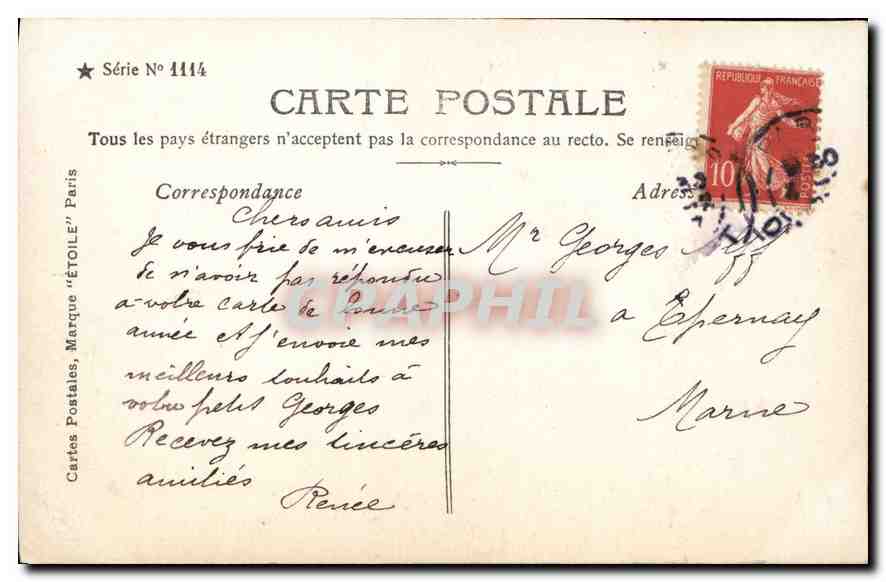 ★ Série Nº 1114
CARTE POSTALE
Tous les pays étrangers n'acceptent pas la correspondance au recto. Se renseig
REPUBLIQUE FRANÇAISE
10
POSTES
Correspondance
Adres
Cartes Postales, Marque "ÉTOILE" Paris
Chers amis
Je vous prie de m'excuser
de n'avoir pas répondu
a votre carte de bonne
année et J'envoie mes
meilleurs souhaits à
votre petit Georges
Recevez mes sincères
amitiés
Renée
Mr Georges
a Epernay
Marne
CPAPHIL